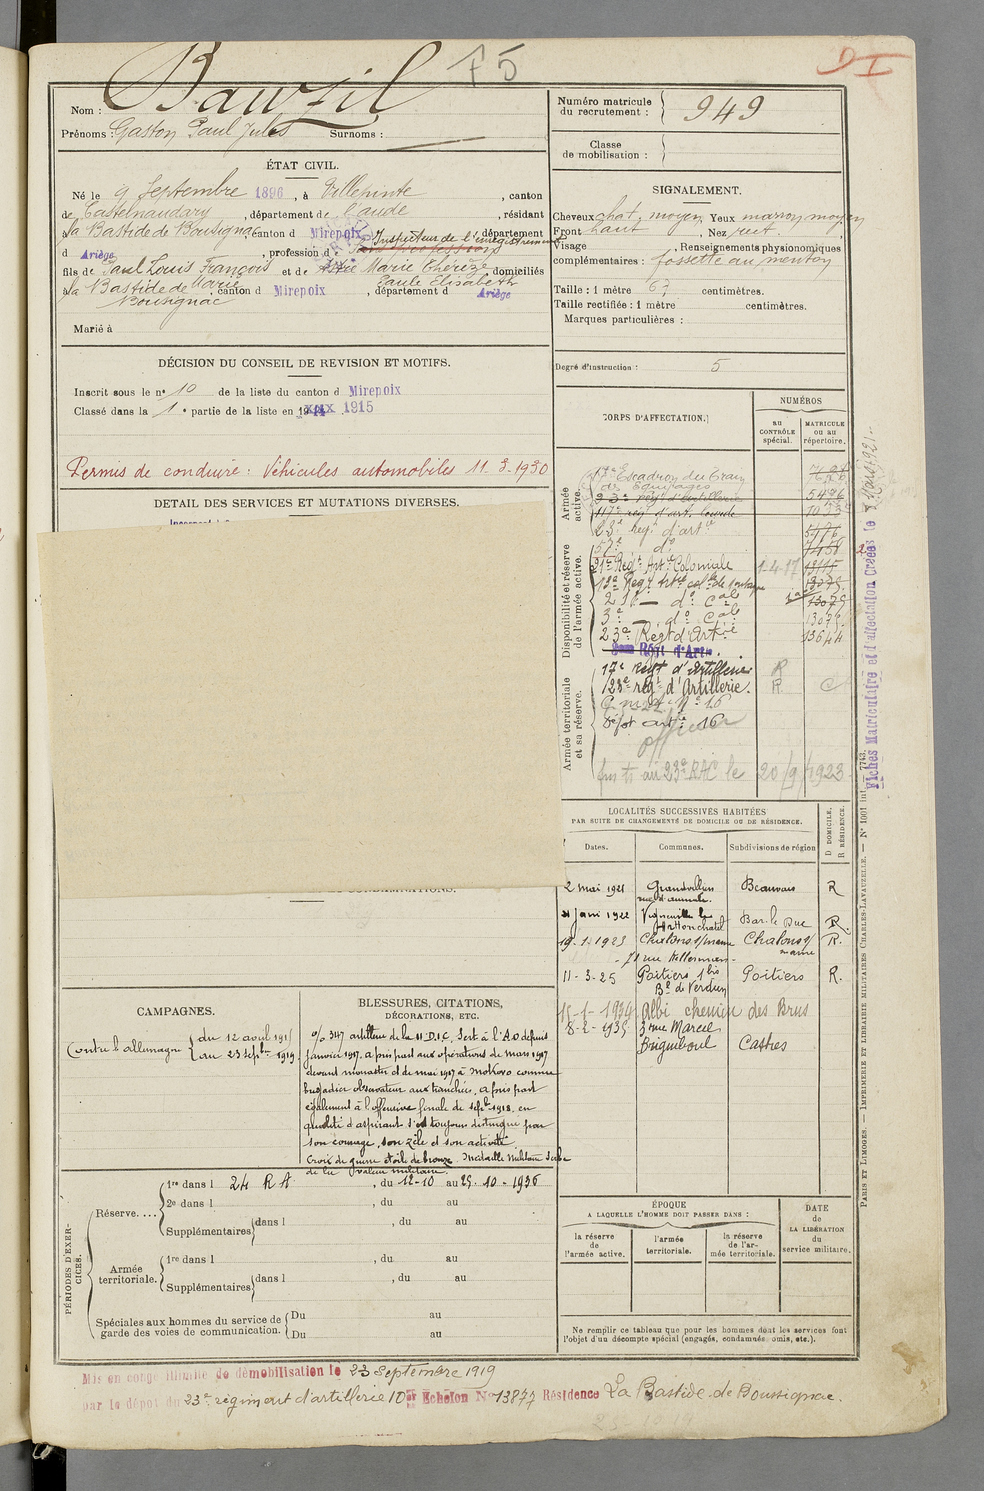 Bauzil
f 5
DI
Nom :
Prénoms : Gaston Paul Jules Surnoms :
Numéro matricule du recrutement : 949
Classe de mobilisation :
ÉTAT CIVIL.
Né le 9 Septembre 1896, à Villepinte, canton
de Castelnaudary, département de l'aude, résidant
à la Bastide de Bousignac, canton d Mirepoix, département
d Ariège, profession d Inspecteur de l'enregistrement
fils de Paul Louis François et de Marie Thérèze, domiciliés
Marie Paule Elisabeth
à la Bastide de Bousignac, canton d Mirepoix, département d Ariège
Marié à
SIGNALEMENT.
Cheveux chat. moyen, Yeux marron moyen
Front haut, Nez rect.
Visage , Renseignements physionomiques
complémentaires : fossette au menton
Taille : 1 mètre 67 centimètres.
Taille rectifiée : 1 mètre centimètres.
Marques particulières :
Degré d'instruction : 5
DÉCISION DU CONSEIL DE REVISION ET MOTIFS.
Inscrit sous le n° 10 de la liste du canton d Mirepoix
Classé dans la 1e partie de la liste en 1915
Permis de conduire : Véhicules automobiles 11-3-1930
DETAIL DES SERVICES ET MUTATIONS DIVERSES.
CORPS D'AFFECTATION.
NUMÉROS
au CONTRÔLE spécial.
MATRICULE ou au répertoire.
Armée active.
Escadron du Train
des Equipages
23e rég. d'artillerie 5476
117e rég d'art. lourde
23e reg. d'artie 5476
57e do 7458
Disponibilité et réserve de l'armée active.
21e Régt Artie Coloniale 1.4.17
3e do Cale 13079
23e Régt d'Artie 13644
Armée territoriale et sa réserve.
17e Régt d'Artillerie R
123e rég. d'Artillerie. R. C
Dépot artie 16
officier
au 23e RAC le 20/9/1923
Fiches Matriculaire et d'affectation Créées le
LOCALITÉS SUCCESSIVES HABITÉES
PAR SUITE DE CHANGEMENTS DE DOMICILE OU DE RÉSIDENCE.
Dates. Communes. Subdivisions de région D DOMICILE. R RÉSIDENCE.
2 mai 1921 Grandvilliers Beauvais R
rue d'aumale.
21 janv 1922 Vigneulles les Hattonchatel Bar le Duc R.
19-1-1923 Chalons s/marne Chalons s/marne R.
11-3-25 Poitiers 1bis Bd de Verdun Poitiers R.
15-1-1934 Albi chemin des Brus
8-2-1935 3 rue Marcel
Briguiboul Castres
CAMPAGNES.
Contre l'allemagne { du 12 avril 1915
au 23 septbre 1919.
BLESSURES, CITATIONS,
DÉCORATIONS, ETC.
o/o 347 artillerie de la 11e D.I.C. Sert à l'A.O depuis
janvier 1917. a pris part aux opérations de mars 1917
devant monastir et de mai 1917 à mokovo comme
brigadier observateur aux tranchées, a pris part
également à l'offensive finale de Septbre 1918. en
qualité d'aspirant s'est toujours distingué par
son courage, son zèle et son activité.
Croix de guerre étoile de bronze. Médaille Militaire Serbe
de la valeur militaire.
PÉRIODES D'EXERCICES.
Réserve.... 1re dans l 24 R A, du 12-10 au 25-10-1936
2e dans l , du au
Supplémentaires dans l , du au
Armée territoriale. 1re dans l , du au
Supplémentaires dans l , du au
Spéciales aux hommes du service de garde des voies de communication. Du au
Du au
ÉPOQUE
A LAQUELLE L'HOMME DOIT PASSER DANS :
la réserve de l'armée active. l'armée territoriale. la réserve de l'armée territoriale.
DATE de LA LIBÉRATION du service militaire.
Ne remplir ce tableau que pour les hommes dont les services font
l'objet d'un décompte spécial (engagés, condamnés, omis, etc.).
PARIS ET LIMOGES. — IMPRIMERIE ET LIBRAIRIE MILITAIRES CHARLES-LAVAUZELLE. — N° 1001 int. — 7743.
Mis en congé illimité de démobilisation le 23 Septembre 1919
par le dépôt du 23e régiment d'artillerie 10e Echelon N° 13877 Résidence La Bastide de Boussignac.